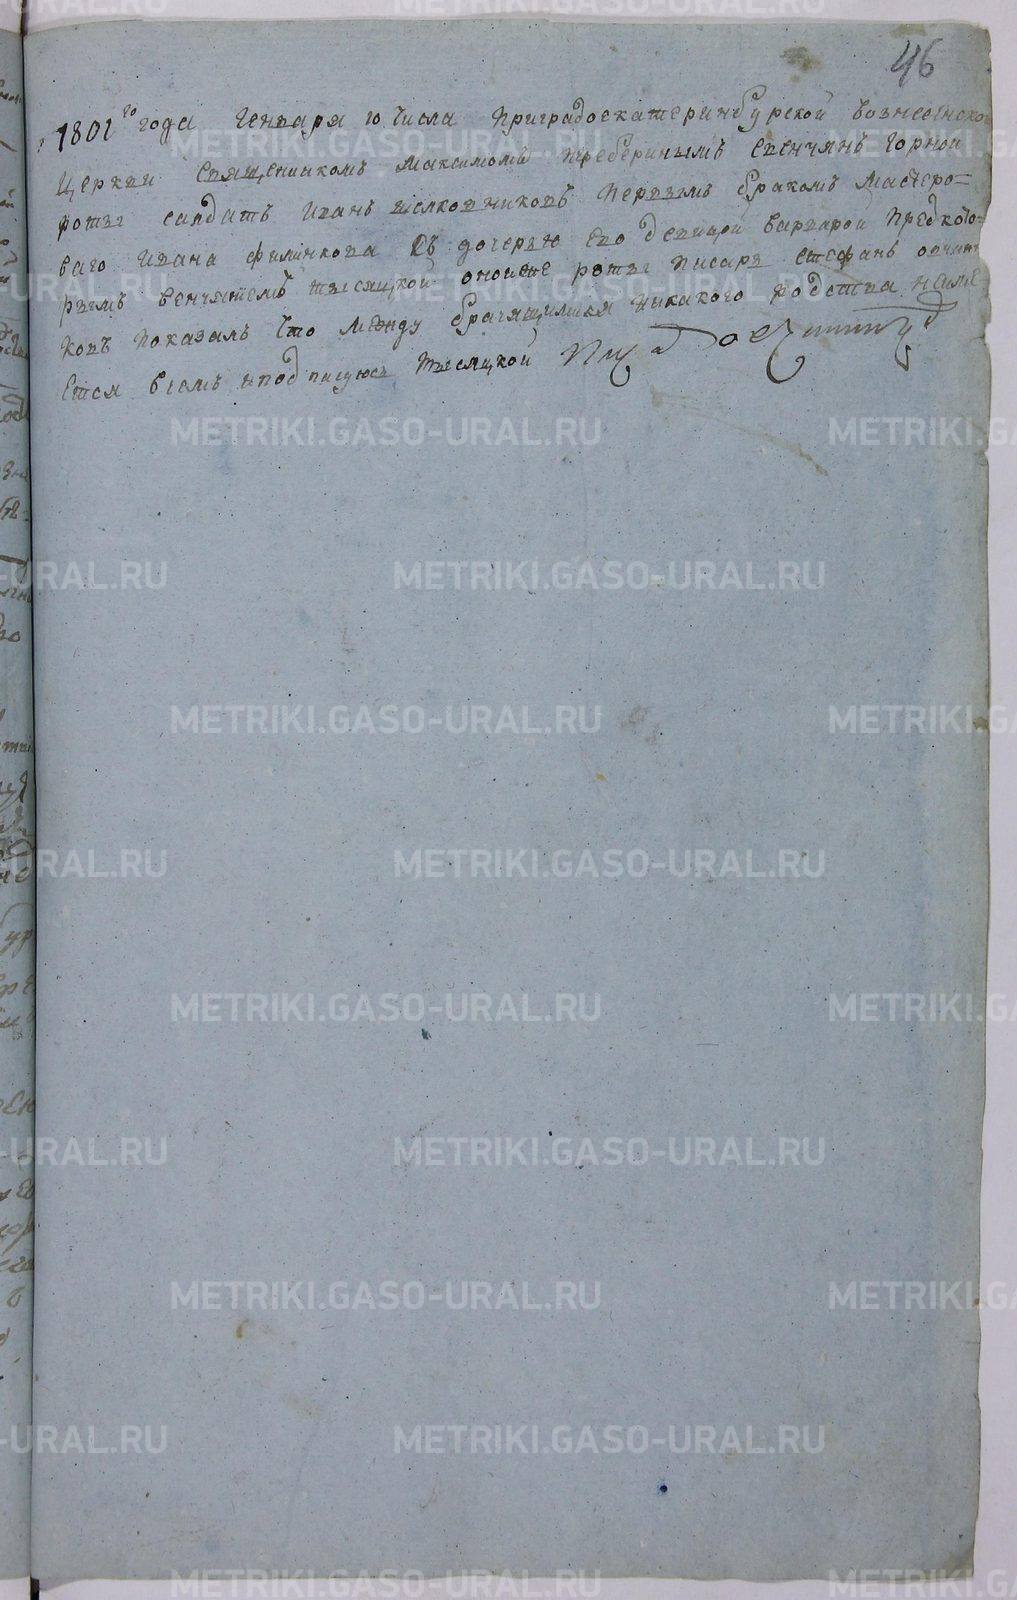 46
1801го года Генваря 10 числа приградоекатеринбурской вознесенско
церкви священикомъ Максимомъ венчянъ горной
роты салдатъ Иванъ первымъ бракомъ мастеро=
ваго Ивана филинкова съ дочерью ево девицей варварой предкото=
рымъ венчятемъ тысяцкой оноиже роты писаръ стефанъ овчин
ковъ показалъ что между брачящимися никакого родства неиме
ется вчомъ иподписуюсь тысяцкой
METRIKI.GASO-URAL.RU